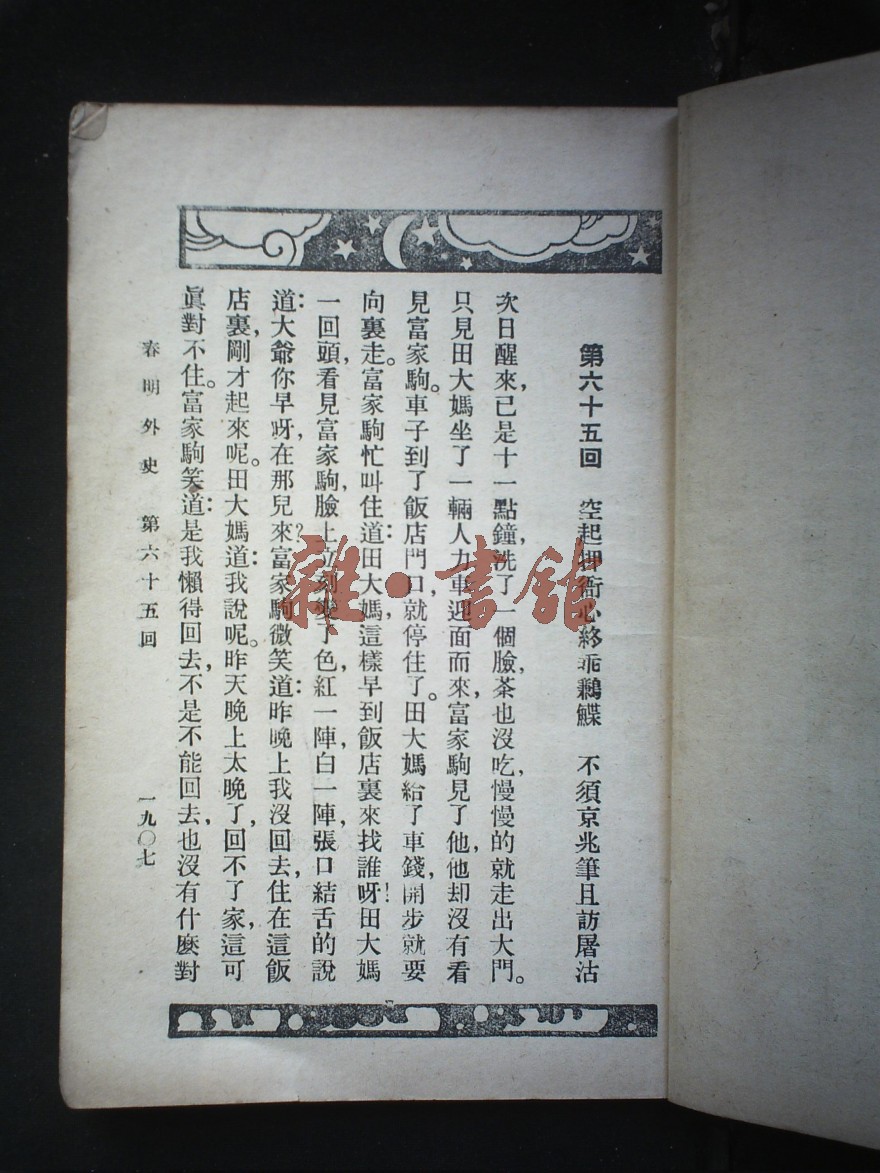 第六十五回　空起押衙心終乖鶼鰈　不須京兆筆且訪屠沽
次日醒來，已是十一點鐘，洗了一個臉，茶也沒吃，慢慢的就走出大門。
只見田大媽坐了一輛人力車迎面而來，富家駒見了他，他却沒有看
見富家駒。車子到了飯店門口，就停住了。田大媽給了車錢，開步就要
向裏走。富家駒忙叫住道：田大媽，這樣早到飯店裏來找誰呀！田大媽
一回頭，看見富家駒，臉上立刻變了色，紅一陣，白一陣，張口結舌的說
道：大爺你早呀，在那兒來？富家駒微笑道：昨晚上我沒回去，住在這飯
店裏，剛才起來呢。田大媽道：我說呢。昨天晚上太晚了，回不了家，這可
眞對不住。富家駒笑道：是我懶得回去，不是不能回去，也沒有什麽對
春明外史　第六十五回　一九〇七
雜·書館